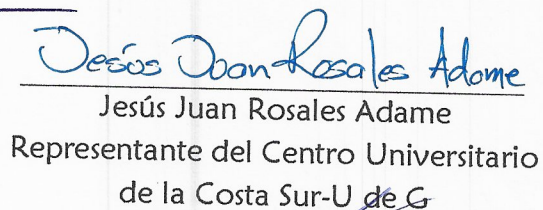 Jesús Juan Rosales Adame
Jesús Juan Rosales Adame
Representante del Centro Universitario
de la Costa Sur-U de G